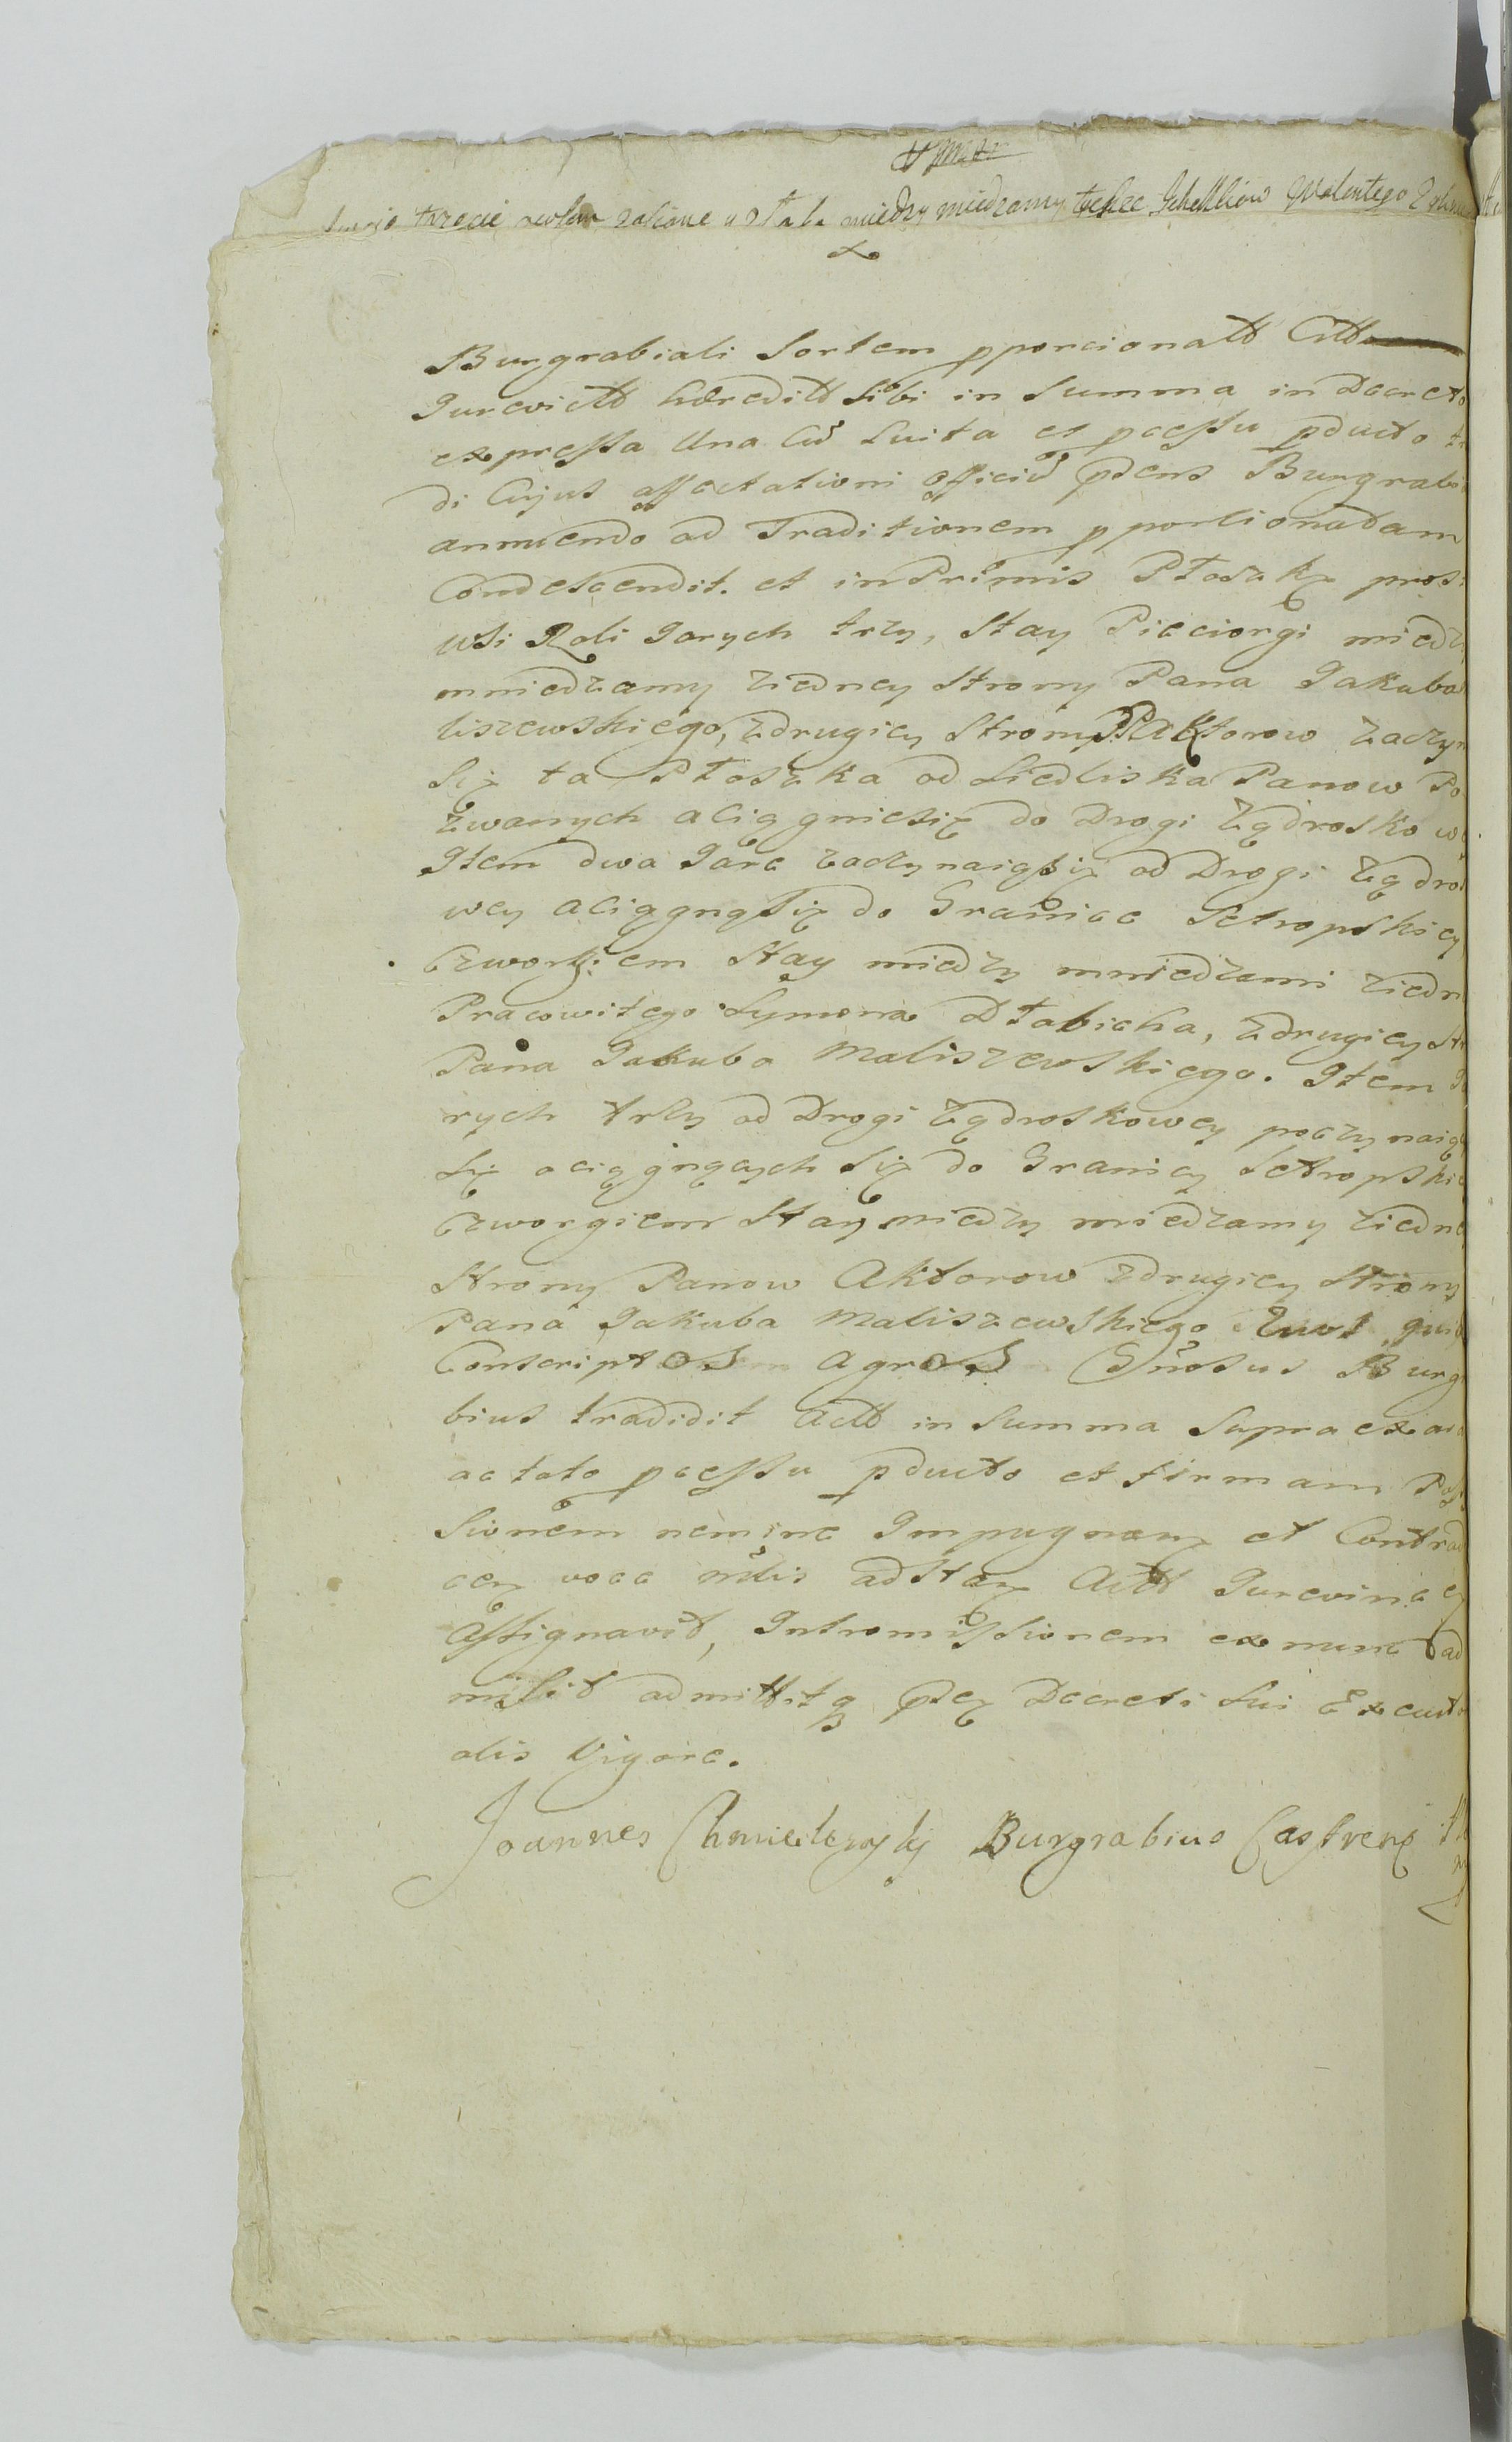 trzecie między miedzamy Walentego
Burgrabiali Sortem pporcionatt Citt
Jurevictt hæreditt sibi in Summa in Decreto
expressa Una Cũ Luita et pcessu pducto
di Cujus affectationi Officiũ pdens Burgrab
annuendo ad Traditionem pportionatam
Condescendit. et in Primis Płoskę pros
wsi Roli Jarych trzy, Stay Pieciorgi miedz
mniedzamy ziedney Strony Pana Jakuba
liszewskiego, zdrugiey Strony PP Aktorow zaczyn
Się ta Płosaka od Siedliska Panow Po
zwanych aciągniesię do Drogi Ządroskow
Jtem dwa Jare zaczynaiąsię od Drogi Ządros
wey aciągnąsię do Granice Setropskiey
Czworgiem Stay między mniedzami ziedn
Pracowitego Symona Dłabicha, zdrugiey St
Pana Jakuba Maliszewskiego. Jtem Ja
rych trzy od Drogi Ządroskowey poczynaią
Się aciągnących się do Granicy Setropski
Czworgiem Stay miedzy miedzamy ziedne
Strony Panow Aktorow zdrugiey Strony
Pana Jakuba Maliszewskiego
Conscriptos agros Gñosus Burg
bius tradidit Actt in Summa Supra exar
ac toto pcessu pducto et firmam Pos
sionem nemine Impugnan et Contrad
cen voce mĩlis adstan Actt Jurevince
Assignavit, Intromissionem ex nunc ad
misit admittitq pten Decreti Sui Executi
alis Vigore.
Joannes Chmieleysky Burgrabius Castrens